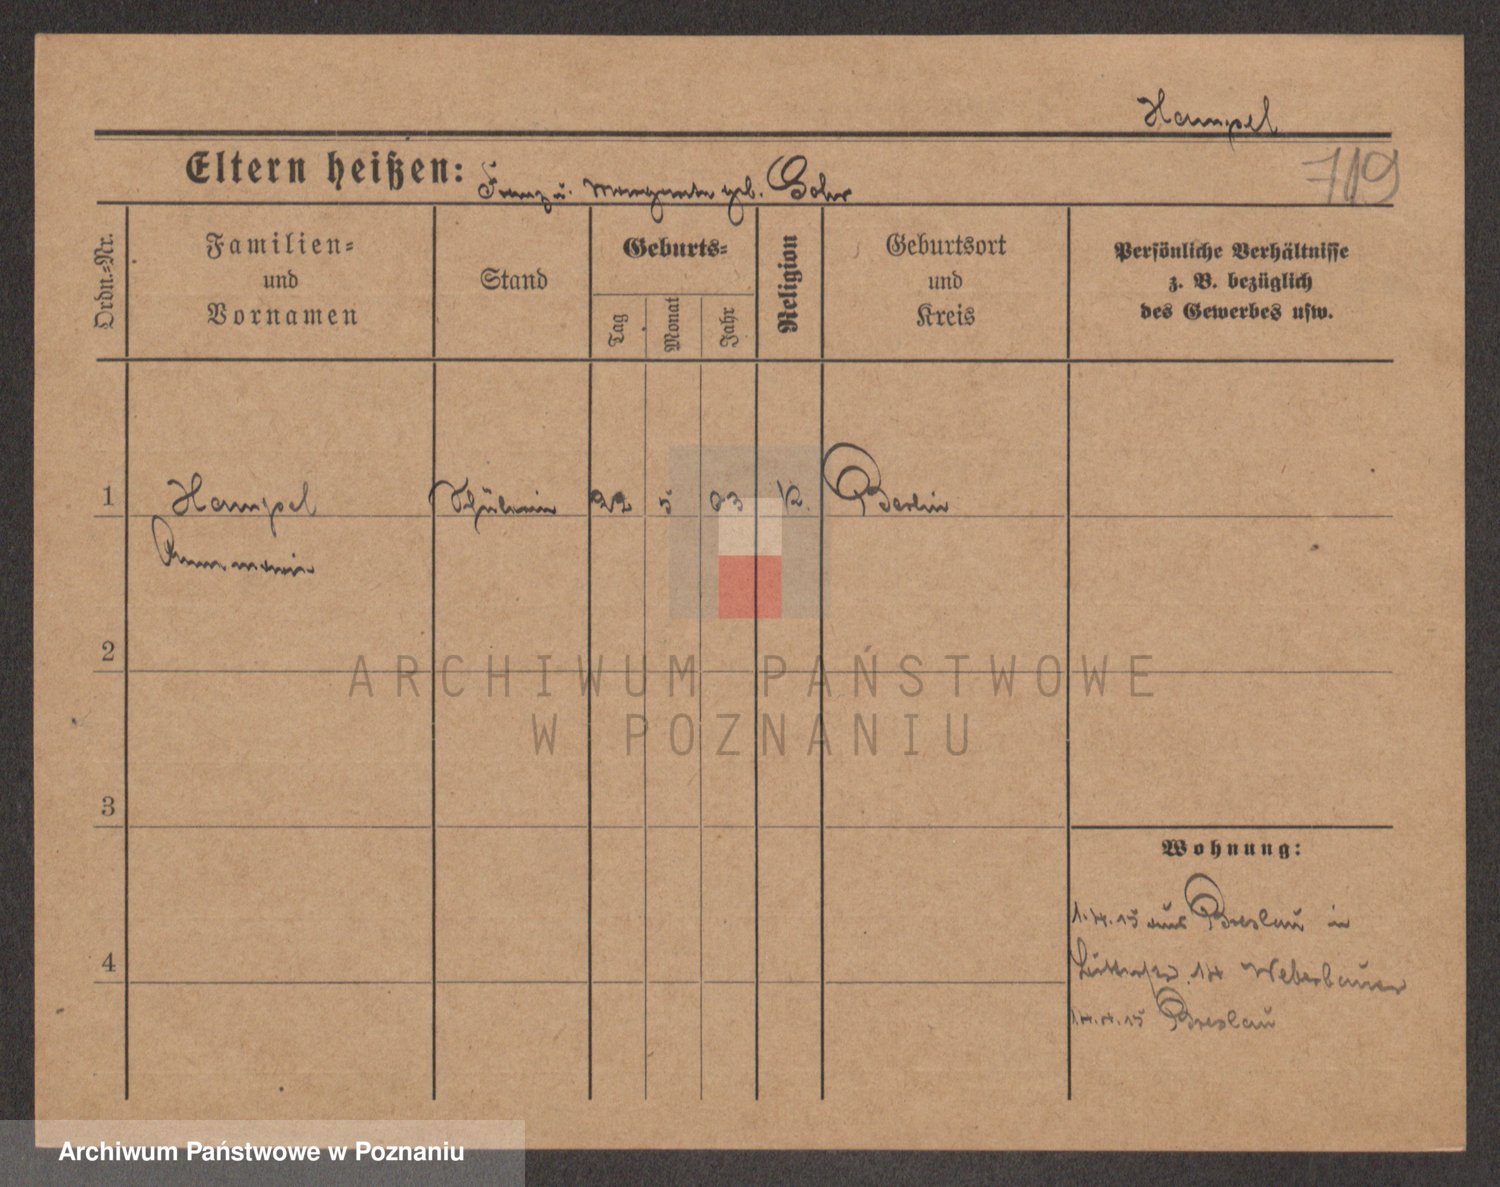 Hampel
719
Eltern heißen: Franz u. Margarete geb. Bohr
Ordn.=Nr.
Familien=
und
Vornamen
Stand
Geburts=
Tag
Monat
Jahr
Religion
Geburtsort
und
Kreis
Persönliche Verhältnisse
z. B. bezüglich
des Gewerbes usw.
1 Hampel Schülerin 22 5 03 K. Berlin
Annemarie
2
ARCHIWUM PAŃSTWOWE
W POZNANIU
3
Wohnung:
1.4.15 aus Breslau in
4
14 Weberbauer
14.4.15 Breslau
Archiwum Państwowe w Poznaniu